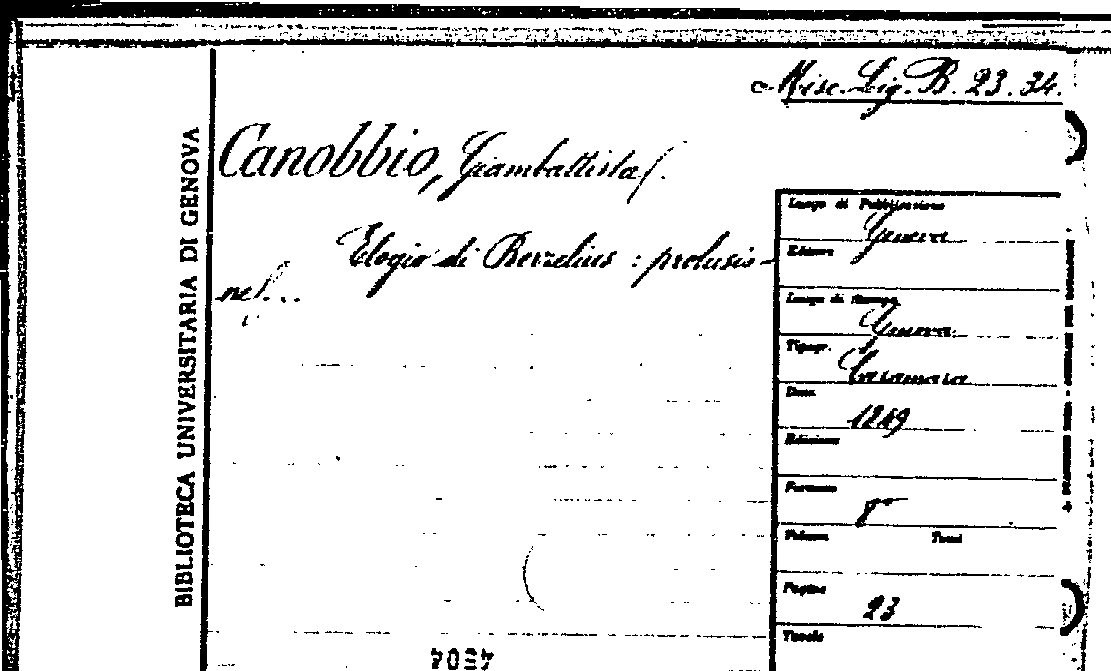 Misc. Lig. B. 23. 34.
BIBLIOTECA UNIVERSITARIA DI GENOVA
Canobbio, Giambattista/.
Elogio di Berzelius : prolusio-
ne/...
Luogo di Pubblicazione
Genova
Editore
Luogo di Stampa
Genova
Tipogr.
Casamara
Data
1849
Edizione
Formato
8°
Volume Tomi
Pagine
23
Tavole